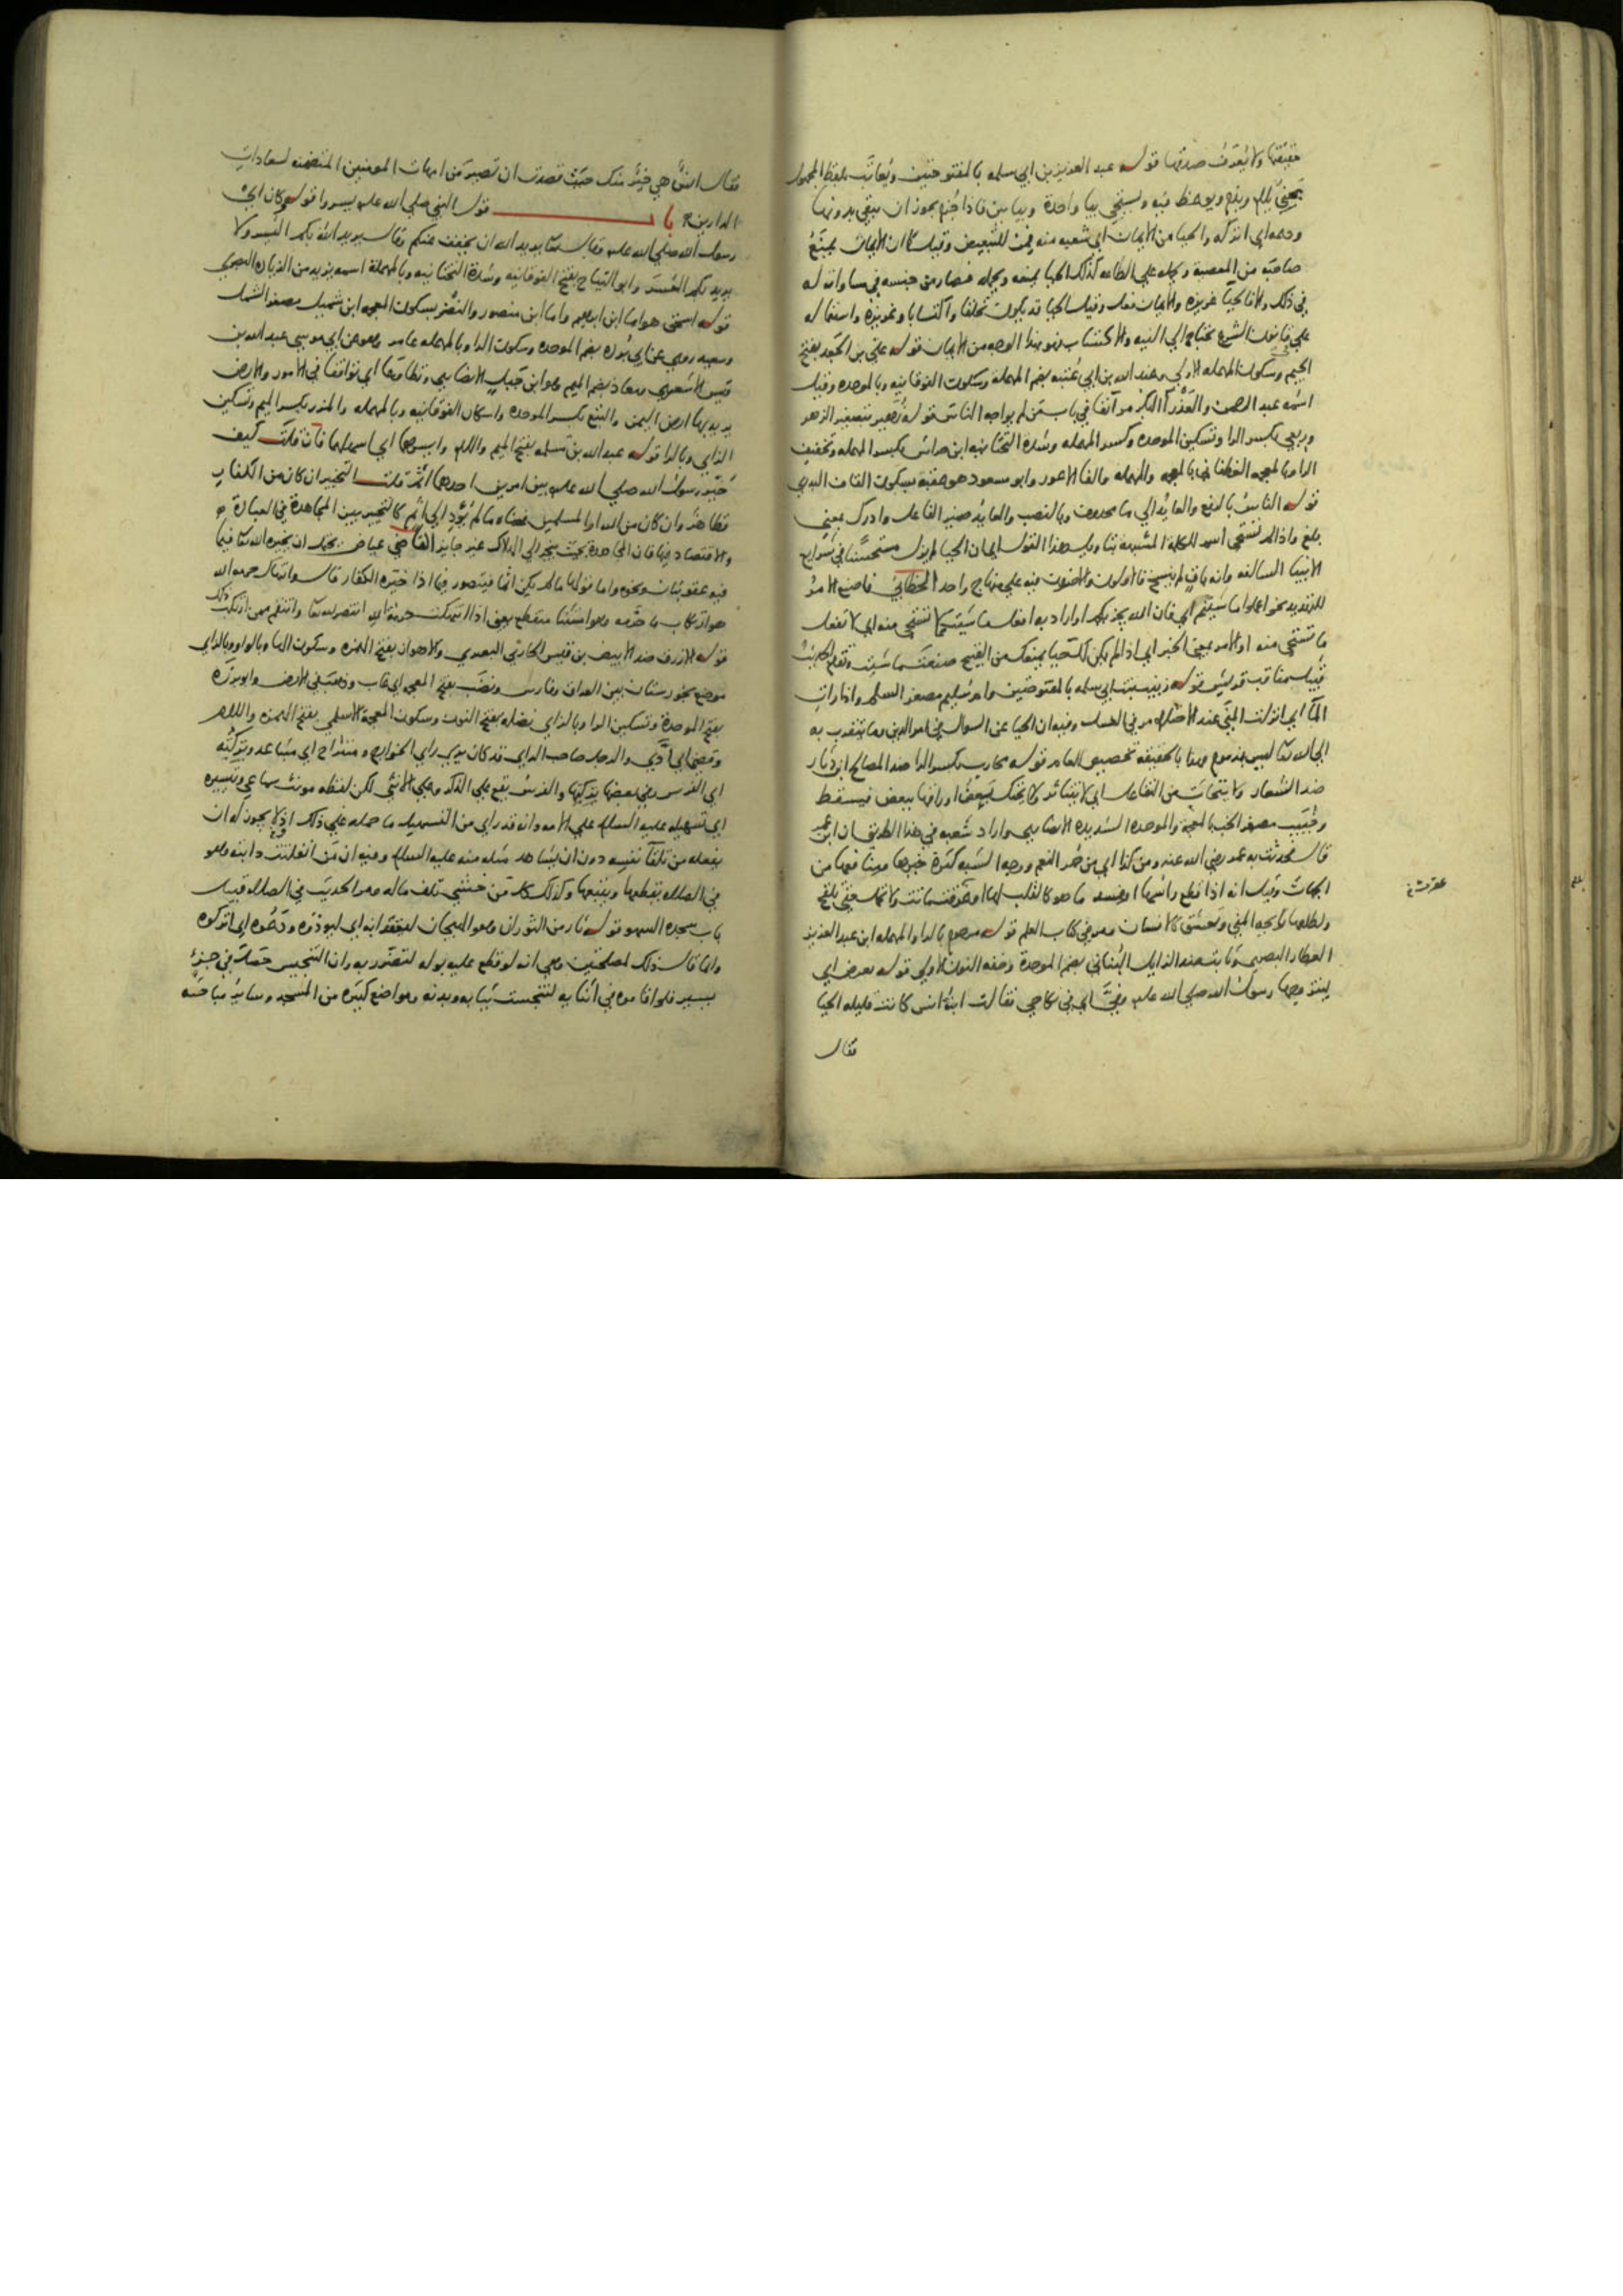 حقيقتها ولا يُعرف صدقها قوله عبد العزيز بن ابي سلمه بالمفتوحتين ويُعاتَب بلفظ المجهول
يعني يلام ويذم ويوعظ فيه ويستحي بيا واحدة وبيا بن فاذا جُزم يجوز ان يبقى بدونها
ودعه اي اتركه والحيا من الايمان اي شعبه منه فمن للتبعيض وقيل كما ان الايمان يمنع
صاحبه من المعصية ويحمله على الطاعه كذلك الحيا يمنعه ويحمله فصار من جنسه في مساواته له
في ذلك ولان الحيا غريزه والايمان فعل وقيل الحيا قد يكون تخلقا واكتسابا وغريزة واستعماله
على قانون الشرع يحتاج الى النيه والاكتساب فهو بهذا الوجه من الايمان قوله علي بن الجعد بفتح
الجيم وسكون المهمله الاولى وعبد الله بن ابي عُتبه بضم المهملة وسكون الفوقانيه وبالموحده وقيل
اسمه عبد الرحمن والعذرآ البكر مر آنفا في باب من لم يواجه الناس قوله زهير بتصغير الزهر
وربعي بكسر الرا وتسكين الموحده وكسر المهمله وشدة التحتانيه ابن حراش بكسر المهمله وتخفيف
الرا وبالمعجمه الغطفاني بالمعجمه والمهملة والفا الاعور وابو مسعود هو عقبة بسكون القاف البدري
قوله الناس بالرفع والعائد الى ما محذوف وبالنصب والعايد ضمير الفاعل وادرك بمعنى
بلغ واذا لم تستحي اسم للكلمة المشبهة بتاويل هذا القول اي ان الحيا لم يزل مستحسنا في شرايع
الانبيا السالفه وانه باق لم ينسخ فالاولون والاخرون فيه على منهاج واحد الخطابي فاصنع الامر
للتهديد نحو اعملوا ما شيتم اي فان الله يجزيكم او اراد به افعل ما شيت مما لا تستحي منه اي لا تفعل
ما تستحي منه او الامر بمعنى الخبر اي اذا لم يكن لك حيا يمنعك من القبيح صنعت ما شيت وتقدم الحديث
قبيل مناقب قريش قوله زينب بنت ابي سلمه بالمفتوحتين وام سُليم مصغر السلم واذا رات
المآ اي انزلت المني عند الاحتلام مر في الغسل وفيه ان الحيا عن السوال في امر الدين وما يتقرب به
الى الله تعالى ليس بمذموم وهذا بالحقيقه تخصيص العام قوله محارب بكسر الرا ضد المصالح ابن دثار
ضد الشعار ولا يتحاتّ من التفاعل اي لا يتناثر ولا يحتك بعض اوراقها ببعض فيسقط
وخُبيب مصغر الخب بالمعجمة والموحده الشديدة الانصاري واراد شعبه في هذا الطريق ان ابن عمر
قال فحدثت به عمر رضي الله عنه ومن كذا اي من حمر النعم ووجه الشبه كثرة خيرها ومنافعها من
الجهات وقيل انه اذا قطع راسها او فسد ما هو كالقلب لها او غرقت ماتت ولا تحمل حتى تلقح
ولطلعها رائحه المني وتعشق كالانسان ومر في كتاب العلم قوله مرحوم بالرا والمهمله ابن عبد العزيز
العطار البصري وثابت ضد الزايل البُناني بضم الموحدة وخفه النون الاولى قوله تعرض اي
ليتزوجها رسول الله صلى الله عليه وفيّ اي في نكاحي فقالت ابنة انس كانت قليله الحيا
فقال
عرقت خ
فقال انس هي خيرٌ منك حيث قصدت ان تصير من امهات المومنين المتضمنه لسعادات
الدارين باب قول النبي صلى الله عليه يسروا قوله وكان اي
رسول الله صلى الله عليه وقال تعالى يريد الله ان يخفف عنكم وقال يريد الله بكم اليُسر ولا
يريد بكم العُسر وابو التياح بفتح الفوقانيه وشدة التحتانيه وبالمهملة اسمه يزيد من الزياده البصري
قوله اسحق هو اما ابن ابراهيم واما ابن منصور والنضر بسكون المعجمه ابن شميل مصغر الشمل
وسعيد روى عن ابي بُرده بضم الموحده وسكون الرا وبالمهمله عامر وهو عن ابي موسى عبد الله بن
قيس الاشعري ومعاذ بضم الميم هو ابن جبل الانصاري وتطاوعا اي توافقا في الامور والارض
يريد بها ارض اليمن والبتع بكسر الموحده واسكان الفوقانيه وبالمهمله والمزر بكسر الميم وتسكين
الزاي وبالرا قوله عبد الله بن مسلمه بفتح الميم واللام وايسرهما اي اسهلهما فان قلت كيف
خُيّر رسول الله صلى الله عليه بين امرين احدهما اثم قلت التخيير ان كان من الكفار
فظاهر وان كان من الله او المسلمين فمعناه ما لم يُؤدِ الى اثم كالتخيير بين المجاهدة في العبادة
والاقتصاد فيها فان المجاهدة بحيث ينجر الى الهلاك غير جايز القاضي عياض يحتمل ان يخيره الله تعالى فيما
فيه عقوبتان ونحوه واما قولها ما لم يكن اثما فيتصور فيما اذا خيّره الكفار قال وانتهاك حرمه الله
هو ارتكاب ما حرّمه وهو استثنا منقطع يعني اذا انتهكت حرمة الله انتصر لله تعالى وانتقم ممن ارتكب ذلك
قوله الازرق ضد الابيض بن قيس الحارثي البصري والاهواز بفتح الهمزه وسكون الها وبالواو وبالزاي
موضع بخوزستان بين العراق وفارس ونضب بفتح المعجمه اي غاب وذهب في الارض وابو برزة
بفتح الموحدة وتسكين الرا وبالزاي نضله بفتح النون وسكون المعجمة الاسلمي بفتح الهمزه واللام
وقضى اي ادّى والرجل صاحب الراي قد كان يرى راي الخوارج ومتراخ اي متباعد وتركته
اي الفرس وفي بعضها تركتها والفرس يقع على الذكر وعلى الانثى لكن لفظه مونث سماعي وتيسيره
اي تسهيله عليه السلام على الامه وانه قد راى من التسهيل ما حمله على ذلك اذ لا يجوز له ان
يفعله من تلقآ نفسه دون ان يشاهد مثله منه عليه السلام وفيه ان من انفلتت دابته وهو
في الصلاه يقطعها ويتبعها وكذلك كل من خشي تلف ماله ومر الحديث في الصلاه قبيل
باب سجده السهو قوله ثار من الثوران وهو الهيجان ليقعوا به اي ليوذوه ودعُوه اي اتركوه
وانما قال ذلك لمصلحتين وهي انه لو قطع عليه بوله لتضرر به وان التنجيس حصل في جزءٍ
يسير فلو اقاموه في اثنايه لتنجست ثيابه وبدنه ومواضع كثيره من المسجد وساير مباحثه